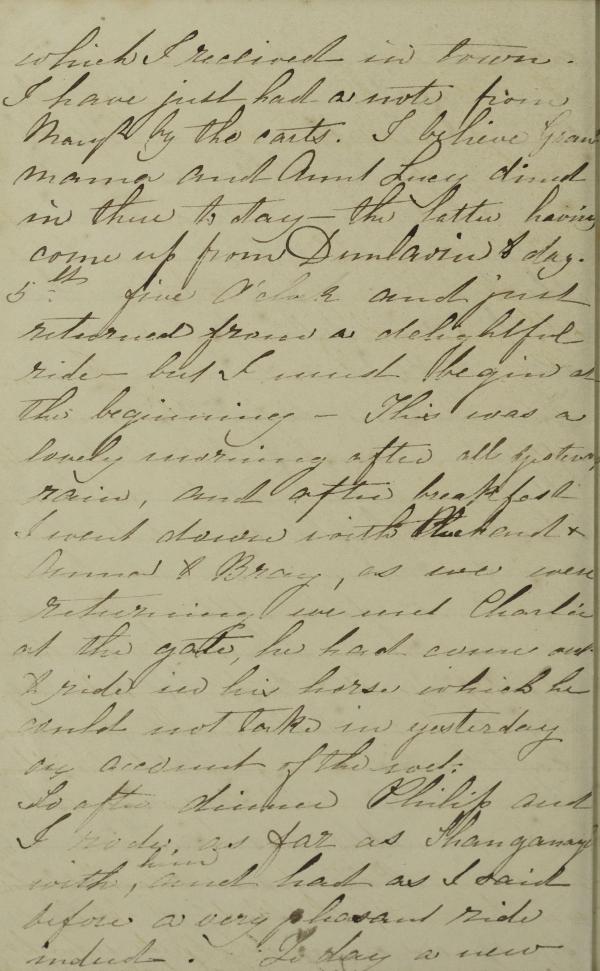 which I received in town.
I have just had a note from
by the carts. I believe Gran
mama and Aunt Lucy dined
in there to day – the latter having
come up from Dunlavin to day.
5th five O'clock and just
returned from a delightful
ride – but I must begin at
the beginning – This was a
lovely morning after all yesterday
rain, and after breakfast
I went down with and &
Anna to Bray, as we were
returning we met Charlie
at the gate, he had come out
to ride in his horse which he
could not take in yesterday
on account of the wet.
So after dinner Philip and
I rode, as far as Shanganagh
with him, and had as I said
before a very pleasant ride
indeed. To day a new